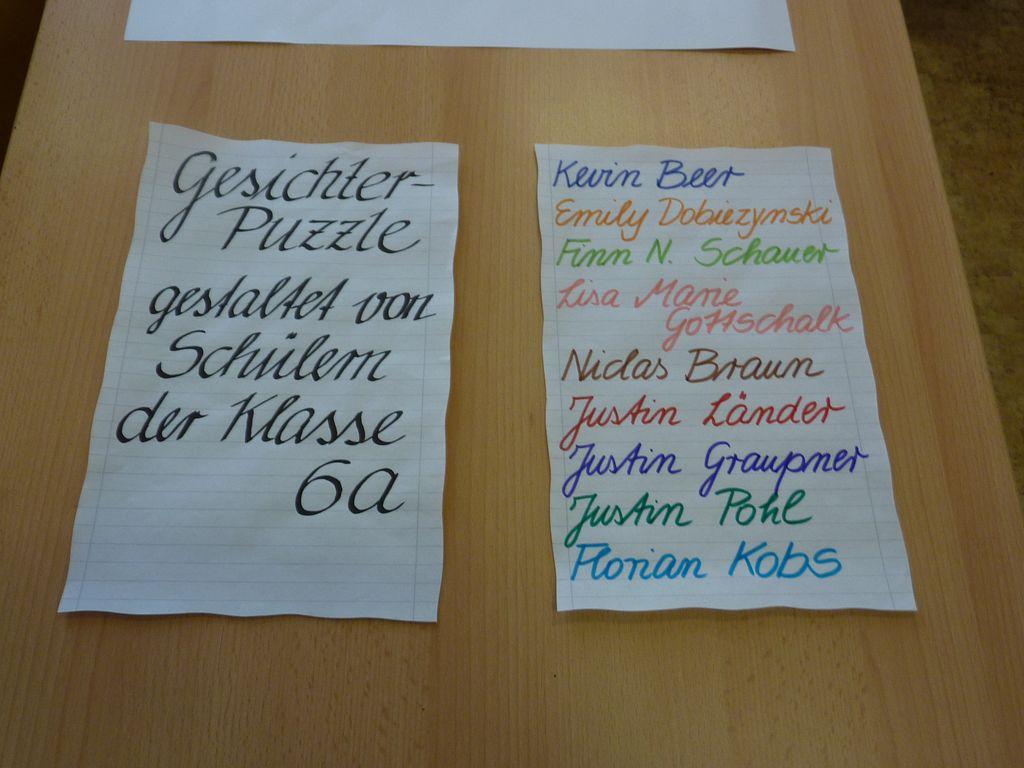 Gesichter-
Puzzle
gestaltet von
Schülern
der Klasse
6a
Kevin Beer
Emily Dobiezynski
Finn N. Schauer
Lisa Marie
Gottschalk
Niclas Braun
Justin Länder
Justin Graupner
Justin Pohl
Florian Kobs